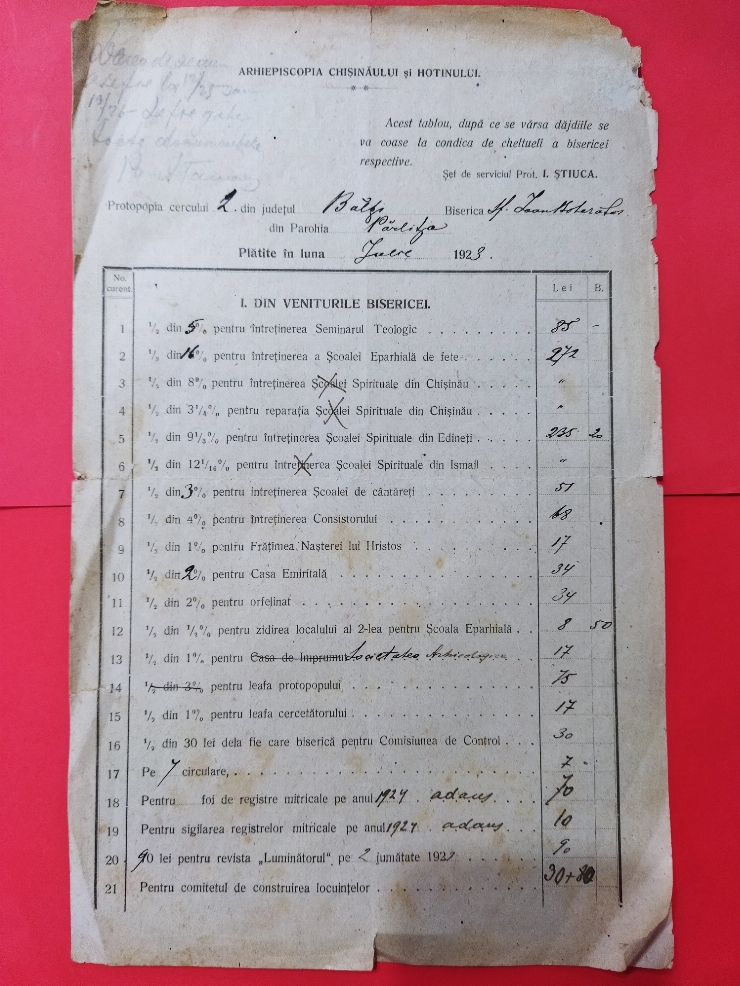 ARHIEPISCOPIA CHIȘINĂULUI și HOTINULUI.
Acest tablou, după ce se vârsa dăjdiile se
va coase la condica de cheltueli a bisericei
respective.
Șef de serviciul Prot. I. ȘTIUCA.
Protopopia cercului 2. din județul Bălți Biserica Sf. Ioan
din Parohia Părlița
Plătite în luna Iulie 1923.
No. curent. Lei B.
I. DIN VENITURILE BISERICEI.
1 ½ din 5% pentru întreținerea Seminarul Teologic 85 -
2 ½ din 16% pentru întreținerea a Școalei Eparhială de fete 272
3 ½ din 8% pentru întreținerea Școalei Spirituale din Chișinău "
4 ½ din 3¼% pentru reparația Școalei Spirituale din Chișinău "
5 ½ din 9⅓% pentru întreținerea Școalei Spirituale din Edineți 235 20
6 ½ din 12¹/₁₆% pentru întreținerea Școalei Spirituale din Ismail "
7 ½ din 3% pentru întreținerea Școalei de cântăreți 51
8 ½ din 4% pentru întreținerea Consistorului 68
9 ½ din 1% pentru Frățimea Nașterei lui Hristos 17
10 ½ din 2% pentru Casa Emiritală 34
11 ½ din 2% pentru orfelinat 34
12 ½ din ½% pentru zidirea localului al 2-lea pentru Școala Eparhială 8 50
13 ½ din 1% pentru Casa de Imprumu Societatea Arheologica 17
14 ½ din 3% pentru leafa protopopului 75
15 ½ din 1% pentru leafa cercetătorului 17
16 ½ din 30 lei dela fie care biserică pentru Comisiunea de Control 30
17 Pe 7 circulare, 7 -
18 Pentru foi de registre mitricale pe anul 1924 adaus 70
19 Pentru sigilarea registrelor mitricale pe anul 1924 adaus 10
20 90 lei pentru revista „Luminătorul" pe 2 jumătate 1923 90
21 Pentru comitetul de construirea locuințelor 30+80